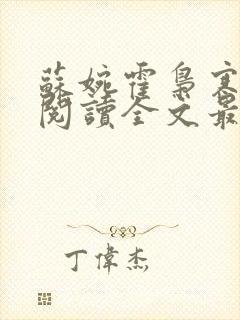 蘇婉霍梟寒
閱讀全文最
丁偉杰